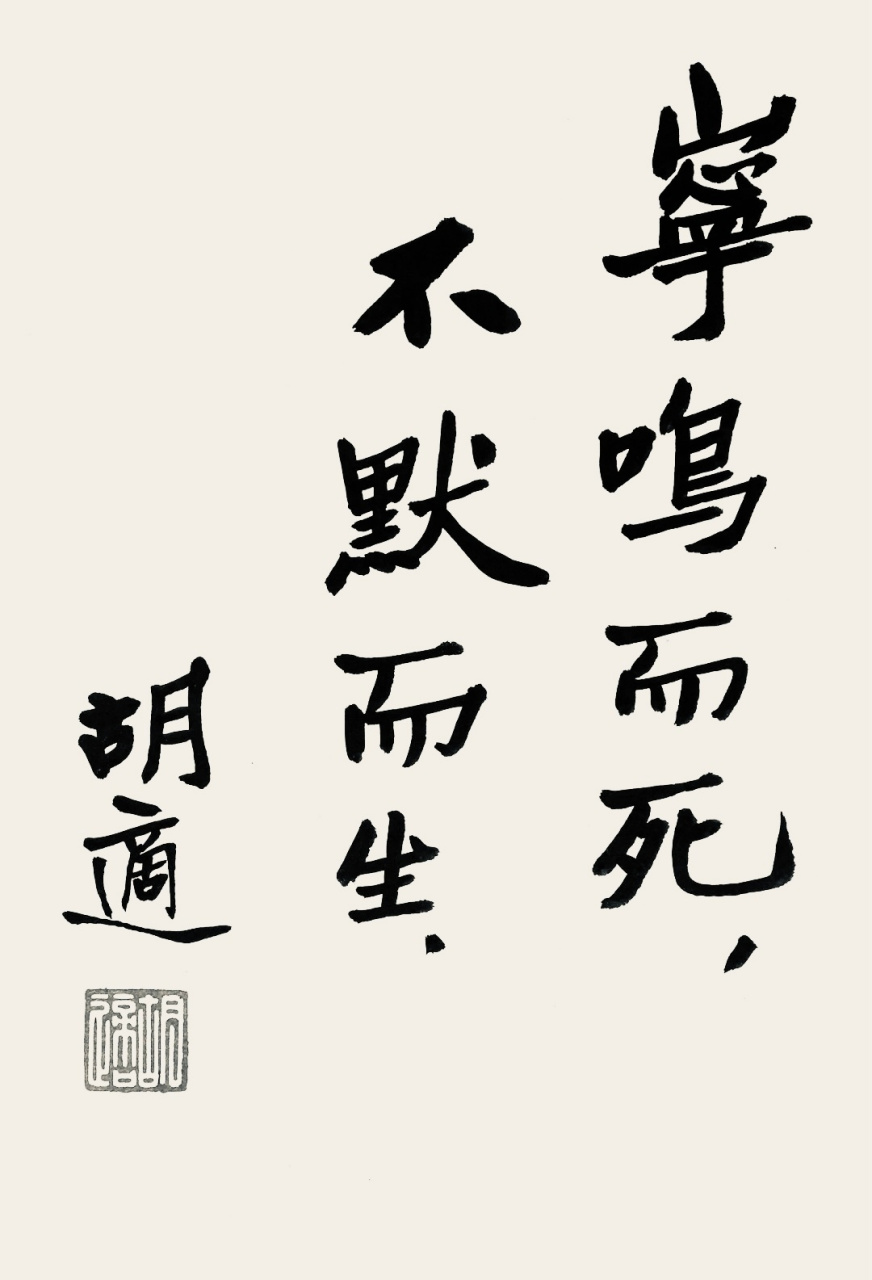 寧鳴而死，
不默而生．
胡適
胡適